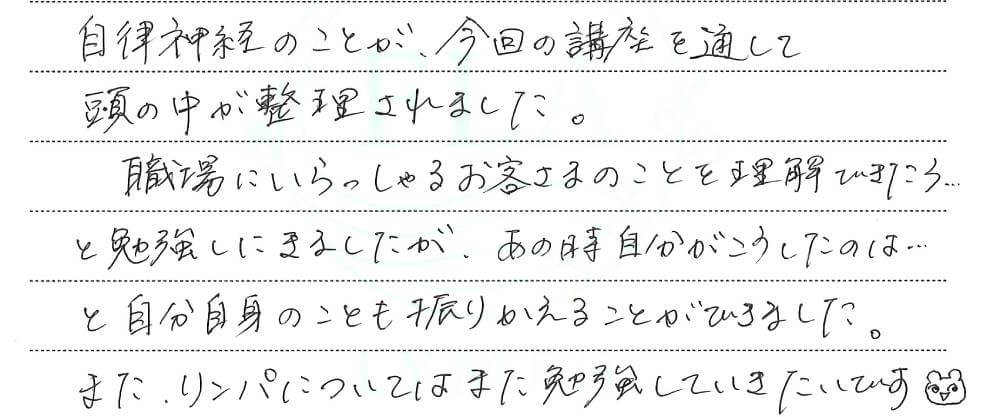 自律神経のことが、今回の講座を通して
頭の中が整理されました。
職場にいらっしゃるお客さまのことを理解できたら…
と勉強しにきましたが、あの時自分がこうしたのは…
と自分自身のことも振りかえることができました。
また、リンパについてはまた勉強していきたいです